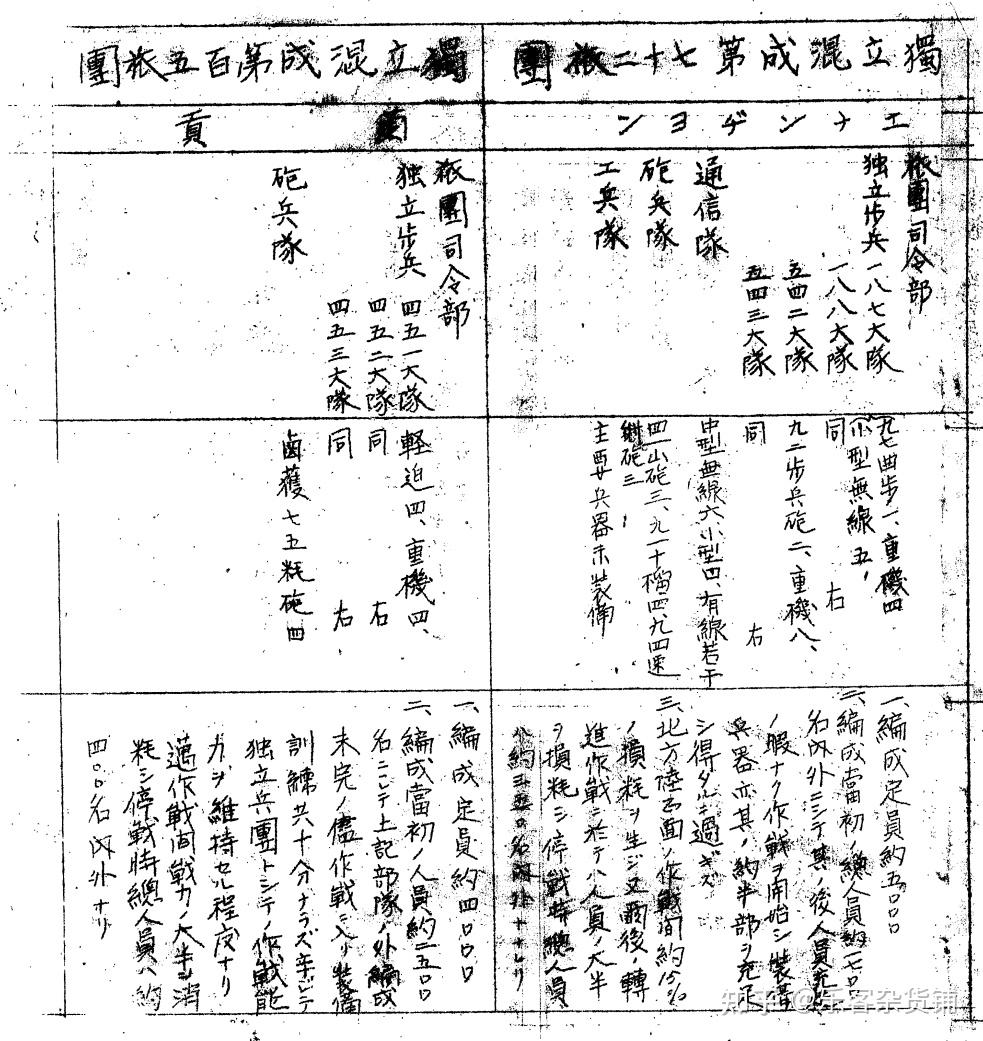 獨立混成第七十二旅團
エナンヂヨン
旅團司令部
独立歩兵一八七大隊
一八八大隊
五四二大隊
五四三大隊
通信隊
砲兵隊
工兵隊
九七曲歩一、重機四
小型無線五、
同 右
九二歩兵砲二、重機八、
同 右
中型無線六、小型四、有線若干
四一山砲三、九一十榴四、九四速
射砲三
主要兵器未装備
一、編成定員約五〇〇〇
二、編成當初ノ總人員約二七〇〇
名内外ニシテ其ノ後人員充足
ノ暇ナク作戦ヲ開始シ装備
兵器亦其ノ約半部ヲ充足
シ得タルニ過ギズ
三、北方陸正面ノ作戦間約15%
ノ損耗ヲ生ジ又爾後ノ轉
進作戦ニ於テハ人員ノ大半
ヲ損耗シ停戦時總人員
名内外ナリ
獨立混成第百五旅團
蘭貢
旅團司令部
独立歩兵四五一大隊
四五二大隊
四五三大隊
砲兵隊
軽迫四、重機四、
同 右
同 右
鹵獲七五粍砲四
一、編成定員約四〇〇〇
二、編成當初ノ人員約二五〇〇
名ニシテ上記部隊ノ外編成
未完ノ儘作戦ニ入リ装備
訓練共十分ナラズ辛ジテ
独立兵團トシテノ作戦能
力ヲ維持セル程度ナリ
邁作戦間戦力ノ大半ヲ消
耗シ停戦時總人員ハ約
四〇〇名内外ナリ
知乎